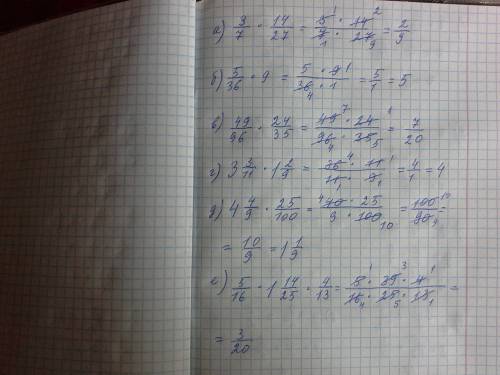 а) 3/7 · 14/27 = 3¹ · 14² / 7₁ · 27₉ = 2/9
б) 5/36 · 9 = 5 · 9¹ / 36₄ · 1 = 5/1 = 5
в) 49/96 · 24/35 = 49⁷ · 24¹ / 96₄ · 35₅ = 7/20
г) 3 3/11 · 1 2/9 = 36⁴ · 11¹ / 11₁ · 9₁ = 4/1 = 4
д) 4 4/9 · 25/100 = ⁴40 · 25 / 9 · 100₁₀ = 100¹⁰ / 90₉ =
= 10/9 = 1 1/9
е) 5/16 · 1 14/25 · 4/13 = 5¹ · 39³ · 4¹ / 16₄ · 25₅ · 13₁ =
= 3/20